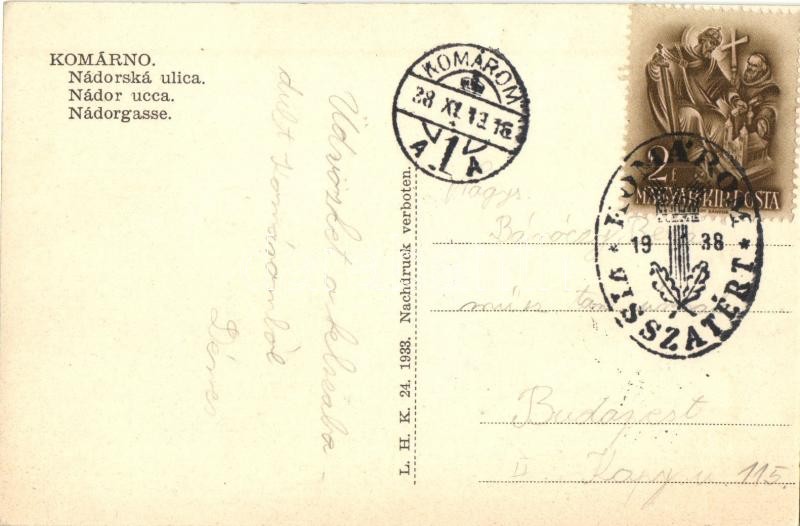 KOMÁRNO.
Nádorská ulica.
Nádor ucca.
Nádorgasse.
Üdvözlet a felszaba-
dult Komáromból
Dénes
L. H. K. 24. 1933. Nachdruck verboten.
KOMÁROM
38 XI. 13. 16
A 1 A
2 f
MAGYAR KIR. POSTA
KOMÁROM
19 38
VISSZATÉRT
Nagys.
Budapest
II. u. 115.